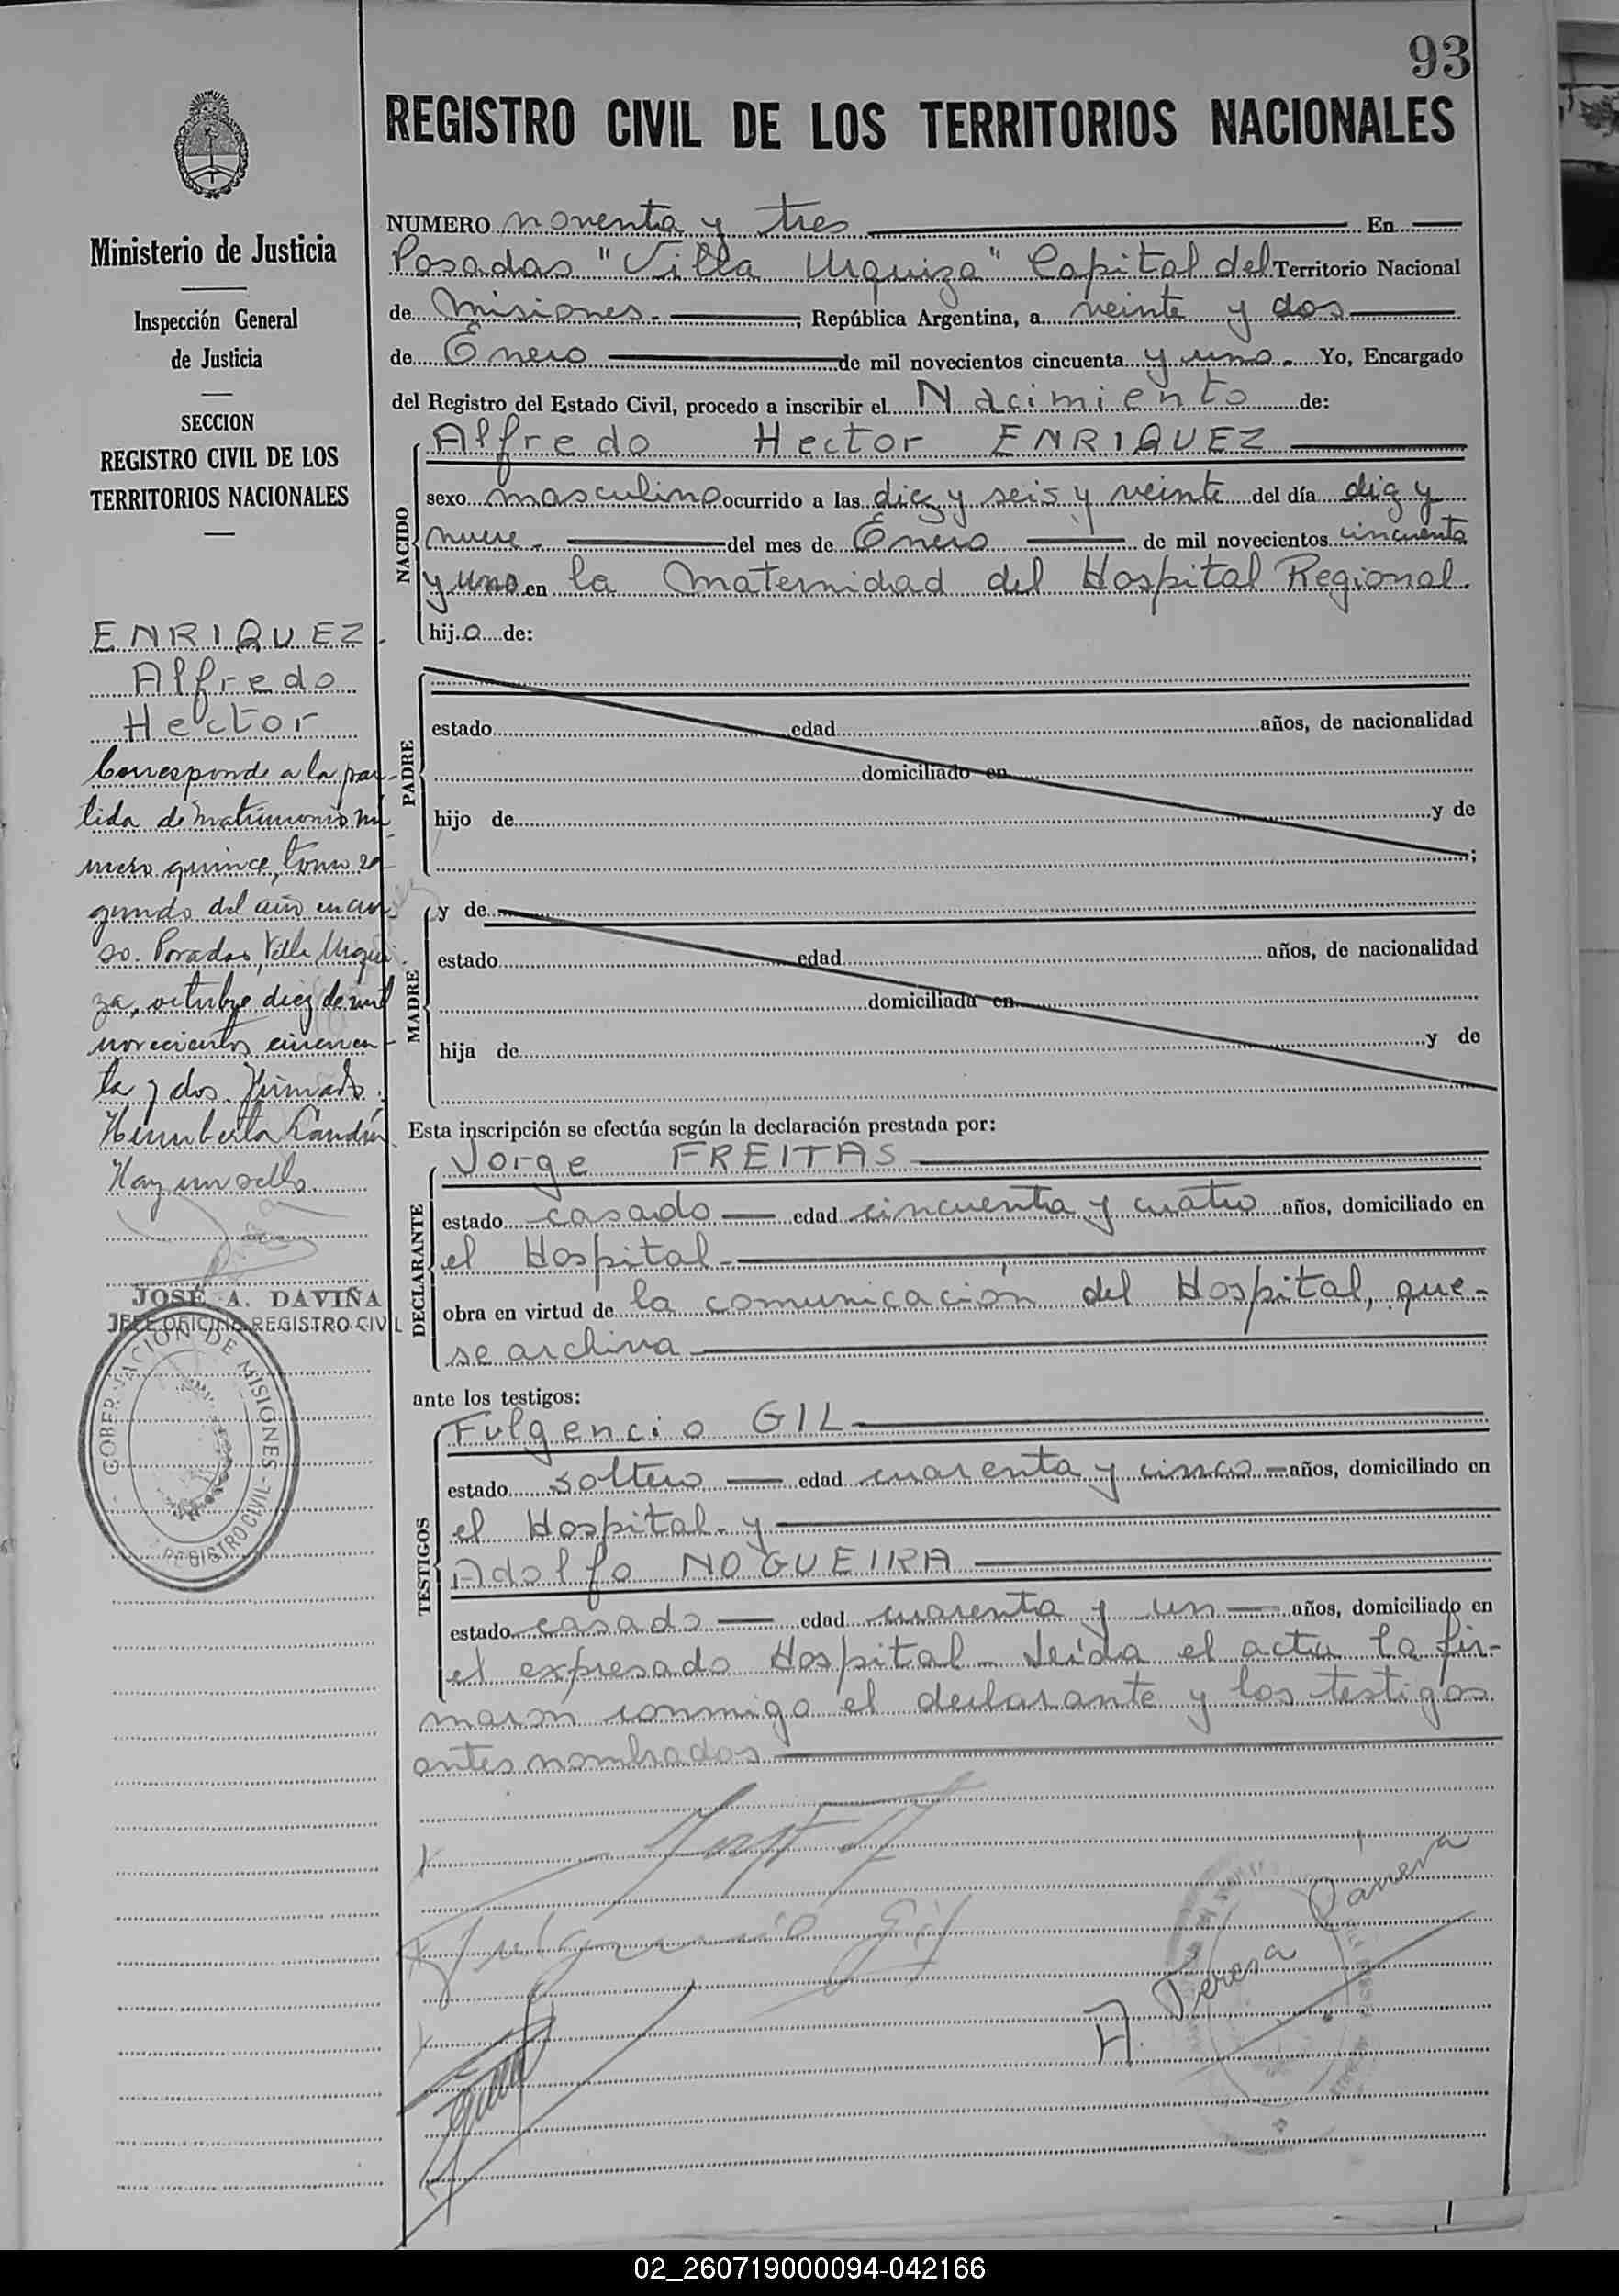 93
REGISTRO CIVIL DE LOS TERRITORIOS NACIONALES
Ministerio de Justicia
Inspección General
de Justicia
SECCION
REGISTRO CIVIL DE LOS
TERRITORIOS NACIONALES
ENRIQUEZ
Alfredo
Hector
Corresponde a la par-
tida de matrimonio nú
mero quince, tomo se-
gundo del año en cur-
so. Posadas, Villa Urqui
za, octubre diez de mil
novecientos cincuen-
ta y dos. Firmado.
Humberto
Hay un sello.
JOSÉ A. DAVIÑA
JEFE OFICINA REGISTRO CIVIL
GOBERNACION DE MISIONES - REGISTRO CIVIL -
NUMERO noventa y tres En
Posadas "Villa Urquiza" Capital del Territorio Nacional
de Misiones.- ; República Argentina, a veinte y dos
de Enero de mil novecientos cincuenta y uno. Yo, Encargado
del Registro del Estado Civil, procedo a inscribir el Nacimiento de:
NACIDO
Alfredo Hector ENRIQUEZ
sexo masculino ocurrido a las diez y seis y veinte del día diez y
nueve - del mes de Enero de mil novecientos cincuenta
y uno en la Maternidad del Hospital Regional.
hij.o de:
PADRE
estado edad años, de nacionalidad
domiciliado en
hijo de y de
;
MADRE
y de
estado edad años, de nacionalidad
domiciliada en
hija de y de
Esta inscripción se efectúa según la declaración prestada por:
DECLARANTE
Jorge FREITAS
estado casado edad cincuenta y cuatro años, domiciliado en
el Hospital -
obra en virtud de la comunicación del Hospital, que-
se archiva
ante los testigos:
TESTIGOS
Fulgencio GIL
estado soltero edad cuarenta y cinco años, domiciliado en
el Hospital - y
Adolfo NOGUEIRA
estado casado edad cuarenta y un años, domiciliado en
el expresado Hospital - Leída el acta la fir-
maron conmigo el declarante y los testigos
antes nombrados
Fulgencio Gil
A. Teresa
02_260719000094-042166